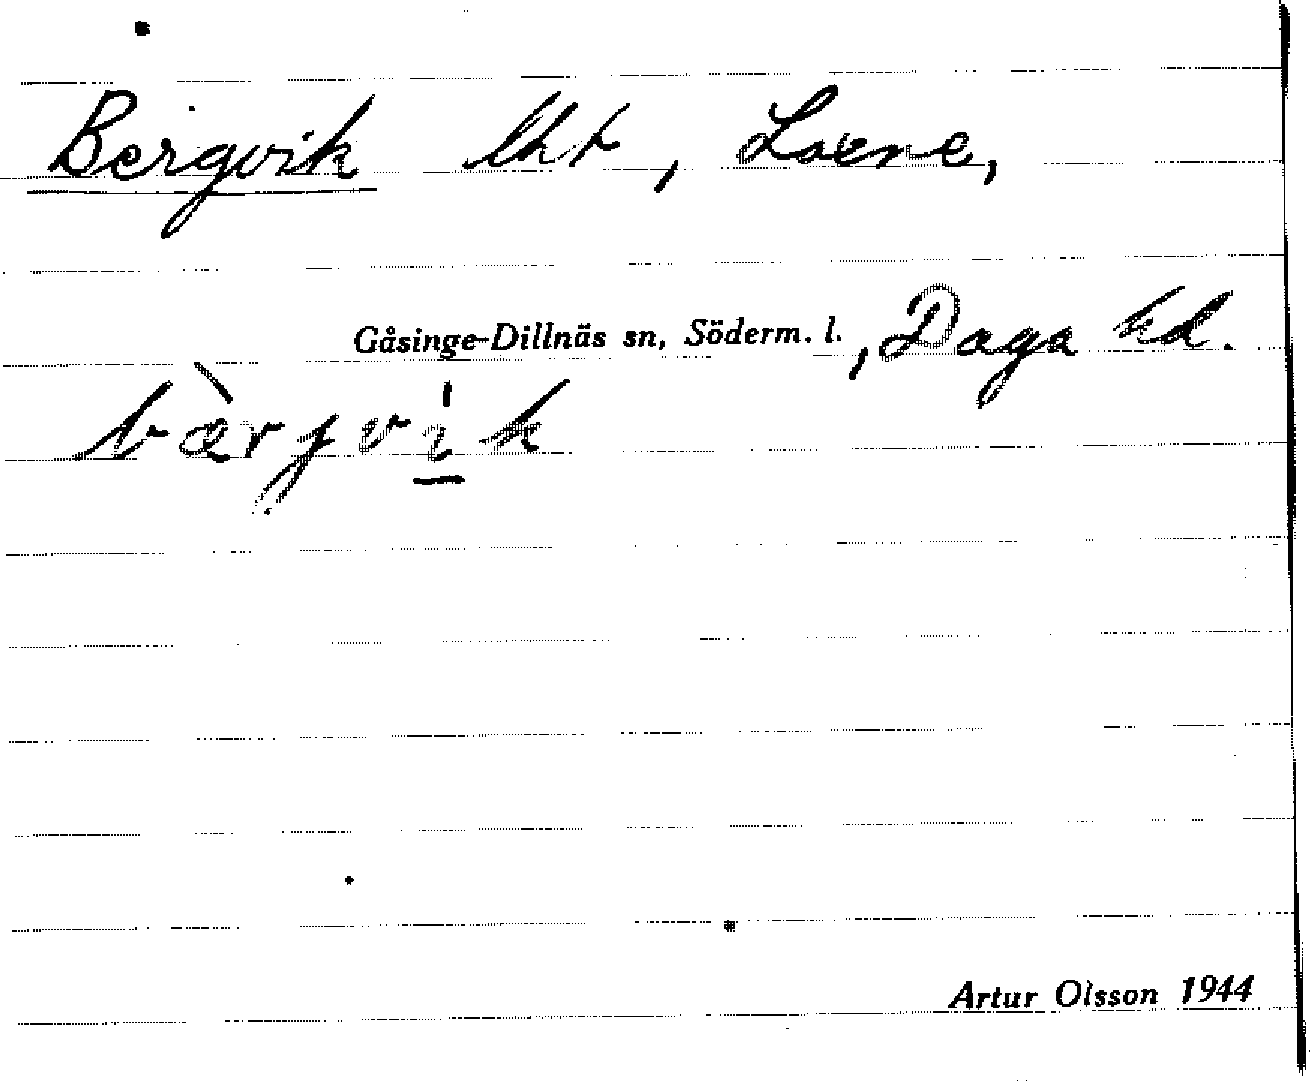 Bergvik lht, Loene,
Gåsinge-Dillnäs sn, Söderm. l., Daga hd.
bæ̀rjvi̲k
Artur Olsson 1944